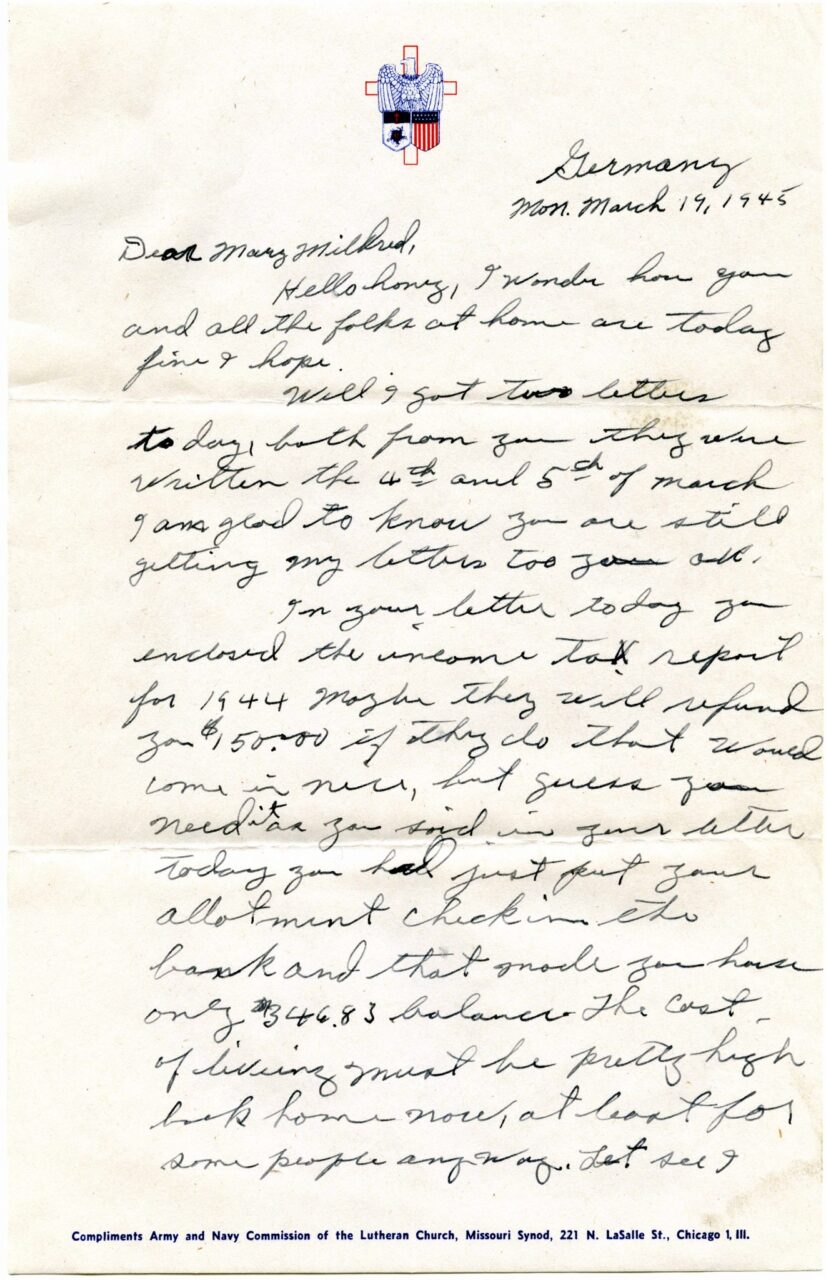 Germany
Mon. March 19, 1945
Dear Mary Mildred,
Hello honey, I wonder how you
and all the folks at home are today
fine I hope.
Well I got two letters
today, both from you they were
written the 4th and 5th of march
I am glad to know you are still
getting my letters too you ok.
In your letter today you
enclosed the income tax report
for 1944 Maybe they will refund
you $150.00 if they do that would
come in nice, but guess you
need it as you said in your letter
today you had just put your
allotment check in the
bank and that made you have
only $346.83 balance. The cost
of liveing must be pretty high
back home now, at least for
some people anyway. Let see I
Compliments Army and Navy Commission of the Lutheran Church, Missouri Synod, 221 N. LaSalle St., Chicago 1, Ill.